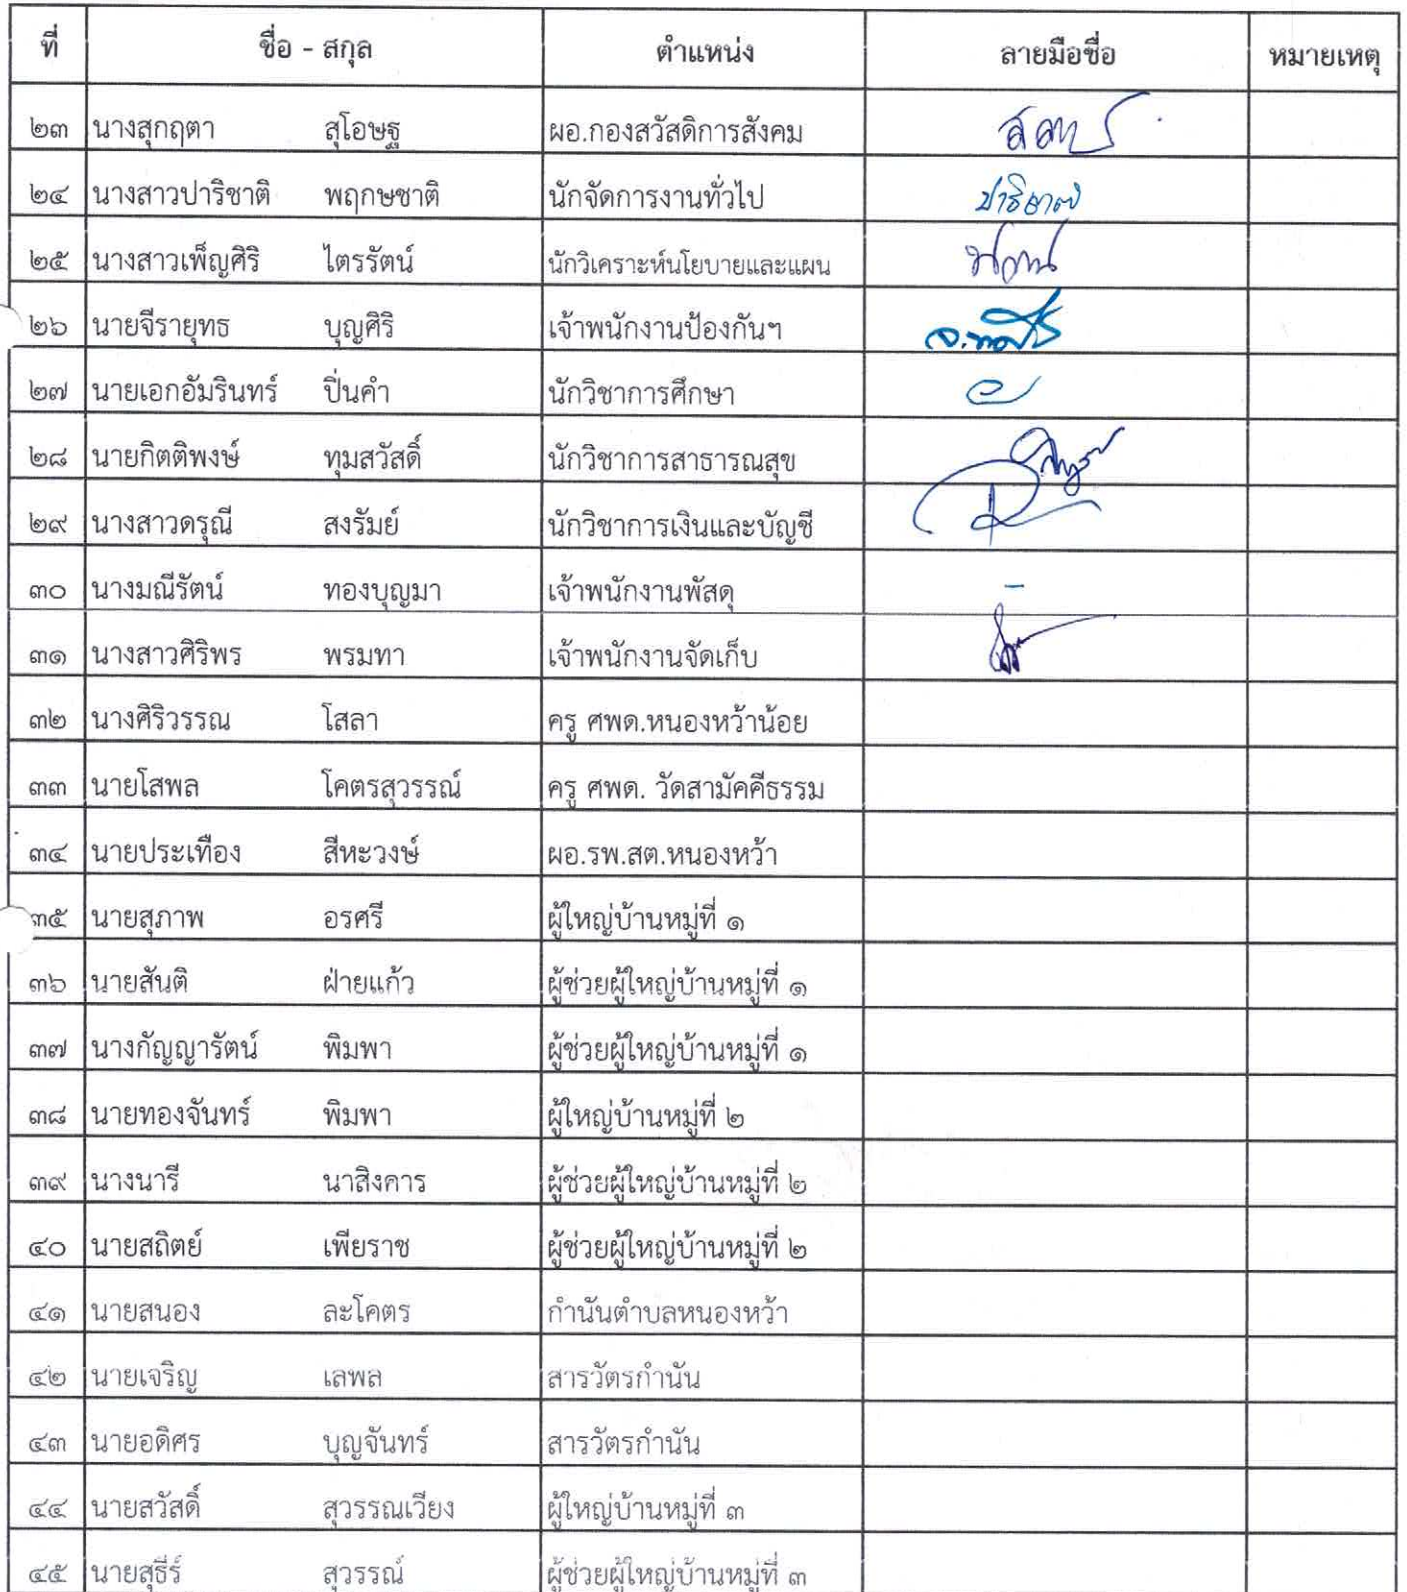 ที่ ชื่อ - สกุล ตำแหน่ง ลายมือชื่อ หมายเหตุ
๒๓ นางสุกฤตา สุโอษฐ ผอ.กองสวัสดิการสังคม
๒๔ นางสาวปาริชาติ พฤกษชาติ นักจัดการงานทั่วไป
๒๕ นางสาวเพ็ญศิริ ไตรรัตน์ นักวิเคราะห์นโยบายและแผน
๒๖ นายจีรายุทธ บุญศิริ เจ้าพนักงานป้องกันฯ
๒๗ นายเอกอัมรินทร์ ปิ่นคำ นักวิชาการศึกษา
๒๘ นายกิตติพงษ์ ทุมสวัสดิ์ นักวิชาการสาธารณสุข
๒๙ นางสาวดรุณี สงรัมย์ นักวิชาการเงินและบัญชี
๓๐ นางมณีรัตน์ ทองบุญมา เจ้าพนักงานพัสดุ -
๓๑ นางสาวศิริพร พรมทา เจ้าพนักงานจัดเก็บ
๓๒ นางศิริวรรณ โสลา ครู ศพด.หนองหว้าน้อย
๓๓ นายโสพล โคตรสุวรรณ์ ครู ศพด. วัดสามัคคีธรรม
๓๔ นายประเทือง สีหะวงษ์ ผอ.รพ.สต.หนองหว้า
๓๕ นายสุภาพ อรศรี ผู้ใหญ่บ้านหมู่ที่ ๑
๓๖ นายสันติ ฝ่ายแก้ว ผู้ช่วยผู้ใหญ่บ้านหมู่ที่ ๑
๓๗ นางกัญญารัตน์ พิมพา ผู้ช่วยผู้ใหญ่บ้านหมู่ที่ ๑
๓๘ นายทองจันทร์ พิมพา ผู้ใหญ่บ้านหมู่ที่ ๒
๓๙ นางนารี นาสิงคาร ผู้ช่วยผู้ใหญ่บ้านหมู่ที่ ๒
๔๐ นายสถิตย์ เพียราช ผู้ช่วยผู้ใหญ่บ้านหมู่ที่ ๒
๔๑ นายสนอง ละโคตร กำนันตำบลหนองหว้า
๔๒ นายเจริญ เลพล สารวัตรกำนัน
๔๓ นายอดิศร บุญจันทร์ สารวัตรกำนัน
๔๔ นายสวัสดิ์ สุวรรณเวียง ผู้ใหญ่บ้านหมู่ที่ ๓
๔๕ นายสุธีร์ สุวรรณ์ ผู้ช่วยผู้ใหญ่บ้านหมู่ที่ ๓